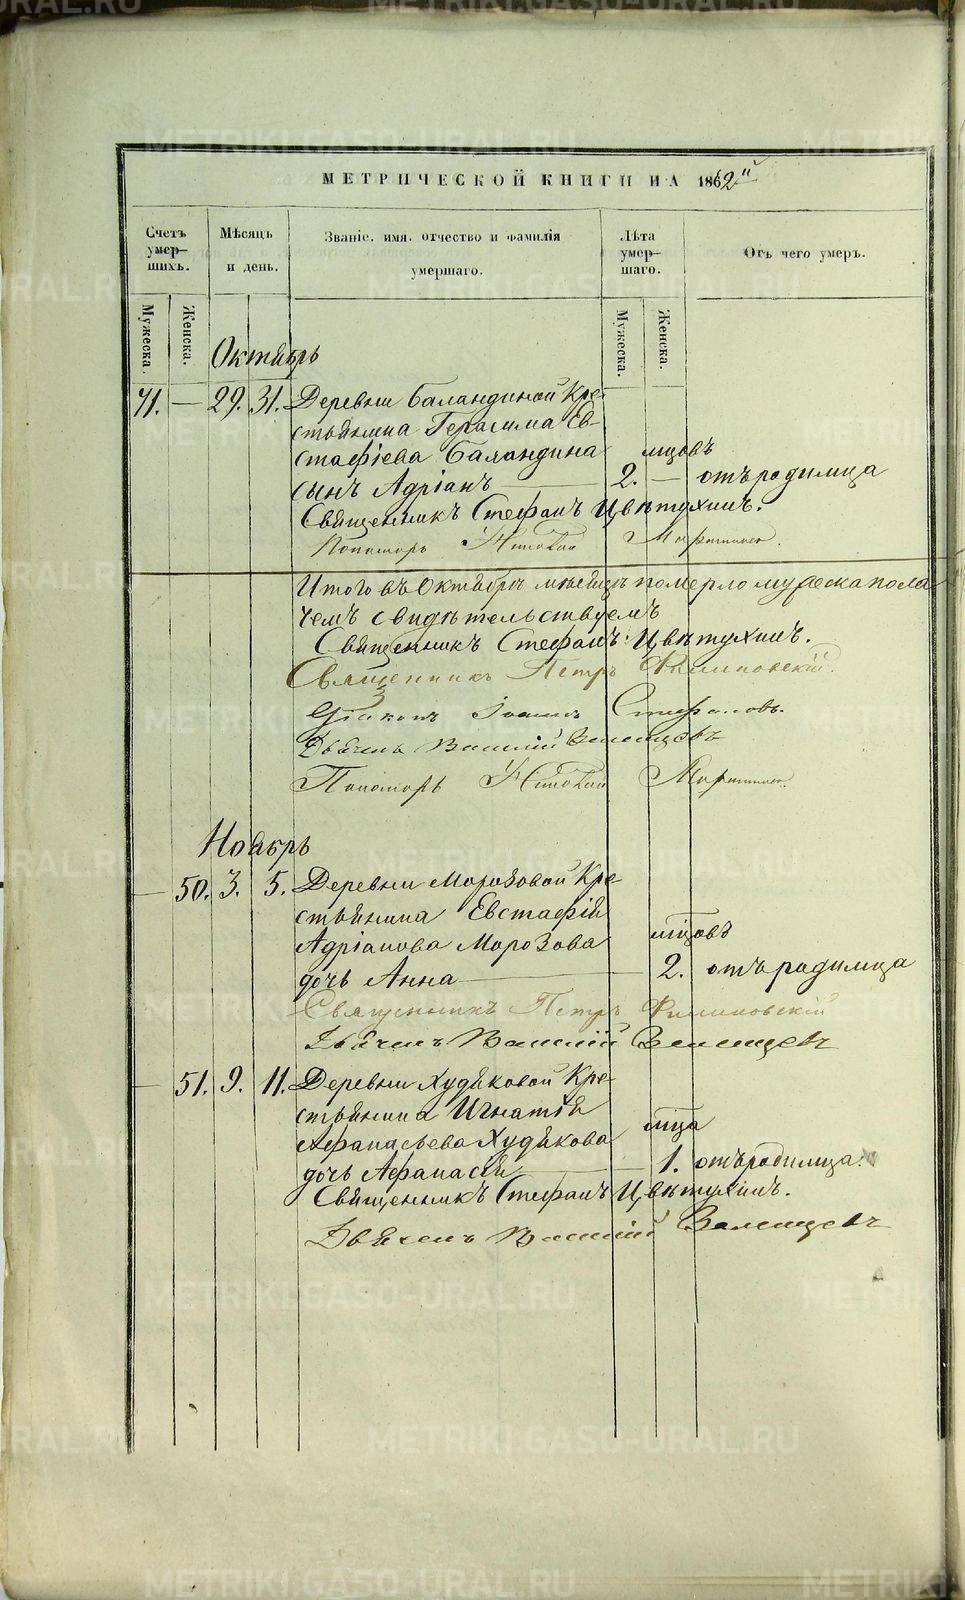 МЕТРИЧЕСКОЙ КНИГИ НА 1862й
Счетъ умер-шихъ. Мѣсяцъ и день. Званіе, имя, отчество и фамилія умершаго. Лѣта умер-шаго. Отъ чего умеръ.
Мужеска. Женска. Мужеска. Женска.
Октябрь
71. — 29. 31. Деревни Баландиной Кре-
стьянина Герасима Ев-
стафіева Баландина мцовъ
сынъ Адріанъ — 2. — отъ родимца
Священникъ Стефанъ Цвѣтухинъ.
Пономарь
Итого въ Октябрѣ мѣсяцѣ померло мужеска пола
чемъ свидѣтельствуемъ
Священникъ Стефанъ Цвѣтухинъ.
Священникъ Петръ Филиповскій.
Діаконъ Іоаннъ Стефановъ.
Дьячекъ Василій
Пономарь
Ноябрь
— 50. 3. 5. Деревни Морозовой Кре-
стьянина Евстафія
Адріанова Морозова мцовъ
дочь Анна — 2. отъ родимца
Священникъ Петръ Филиповскій
Дьячекъ Василій
— 51. 9. 11. Деревни Худяковой Кре-
стьянина Игнатія
Афанасьева Худякова мца
дочь Афанасія — 1. отъ родимца.
Священникъ Стефанъ Цвѣтухинъ.
Дьячекъ Василій
METRIKI.GASO-URAL.RU